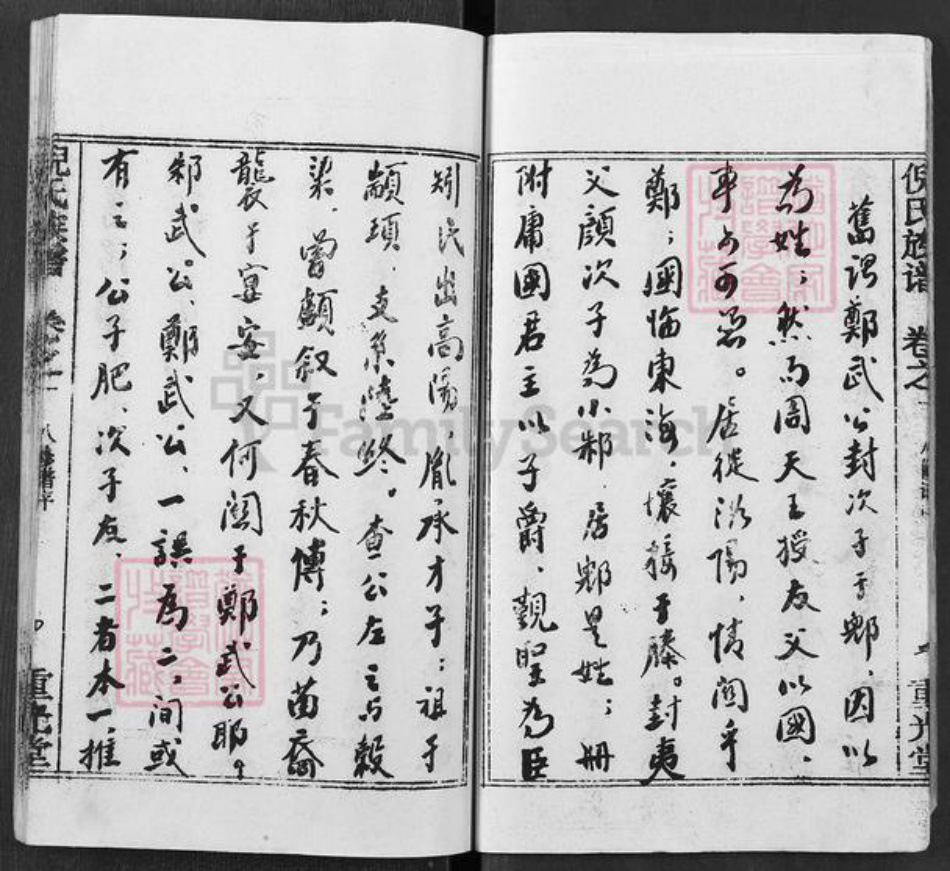 倪氏族谱 卷之一 重光堂
舊谓鄭武公封次子于郳、因以
为姓；然而周天王授友父以國、
事乃可思。居從泗陽、情関乎
鄭；國臨東海、壤接于滕。封夷
父顏次子為小邾、居郳是姓；冊
附庸國君主以子爵、覲聖為臣
矧氏出高陽、胤承才子；祖于
顓頊、支系陸終。查公左之与穀
梁、曾顯叙于春秋傳；乃苗裔
襲于宴安、又何関于鄭武公耶。
邾武公、鄭武公、一誤為二，间或
有之；公子肥、次子友、二者本一，推
倪氏族譜 卷之一 八修譜序 重光堂
FamilySearch